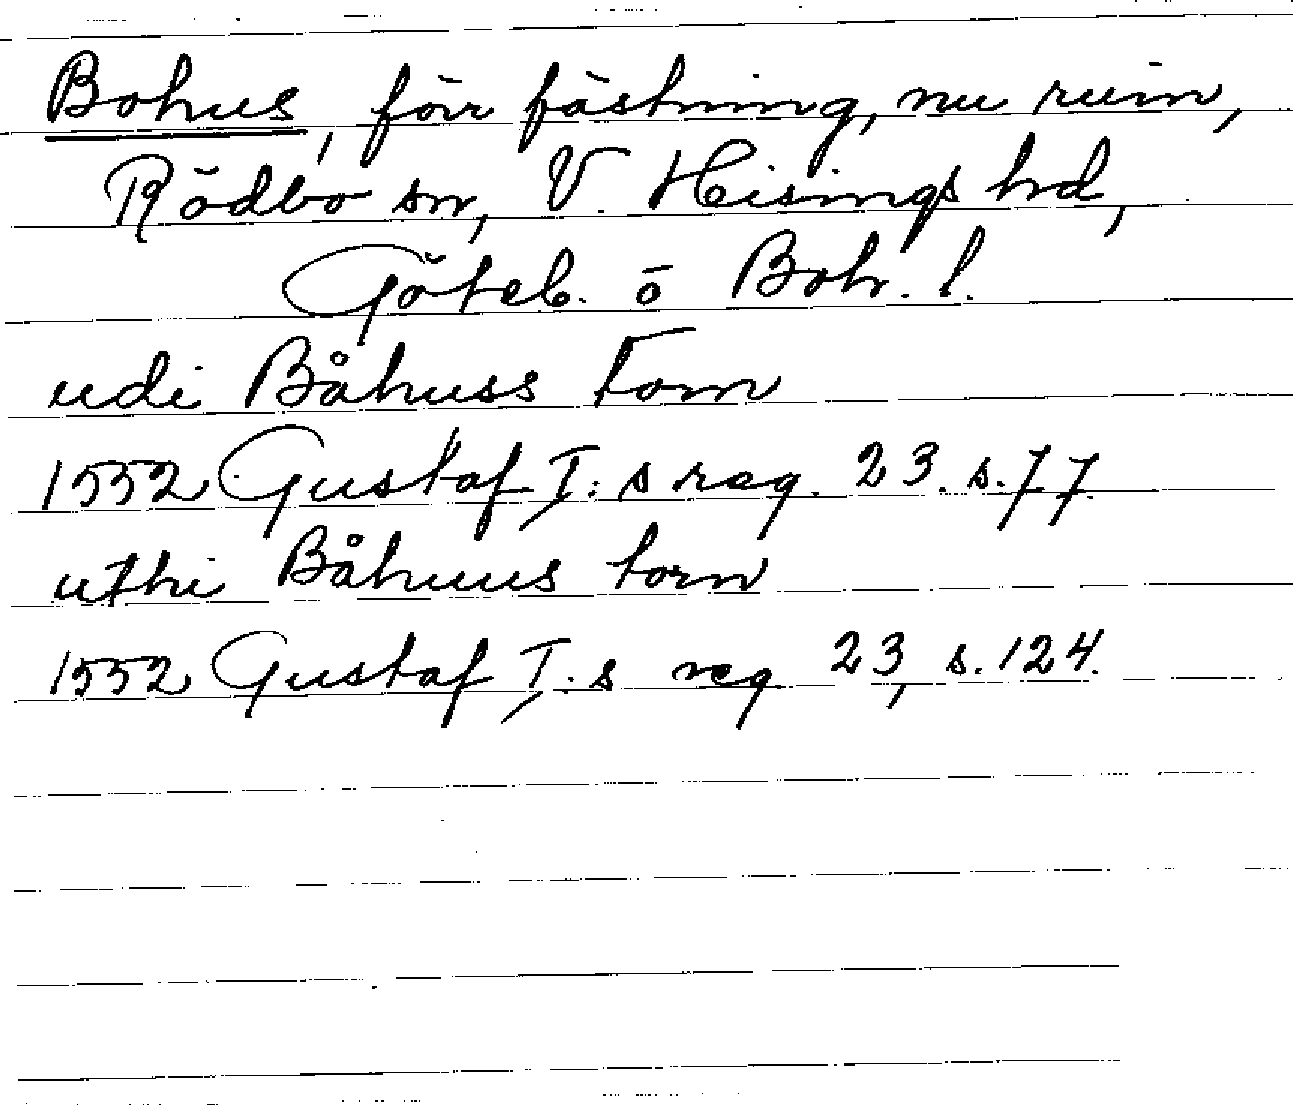 Bohus, förr fästning, nu ruin,
Rödbo sn, V. Hisings hd,
Göteb. o Boh. l.
udi Båhuss torn
1552 Gustaf I:s reg. 23. s. 77.
uthi Båhuus torn
1552 Gustaf I:s reg 23, s. 124.